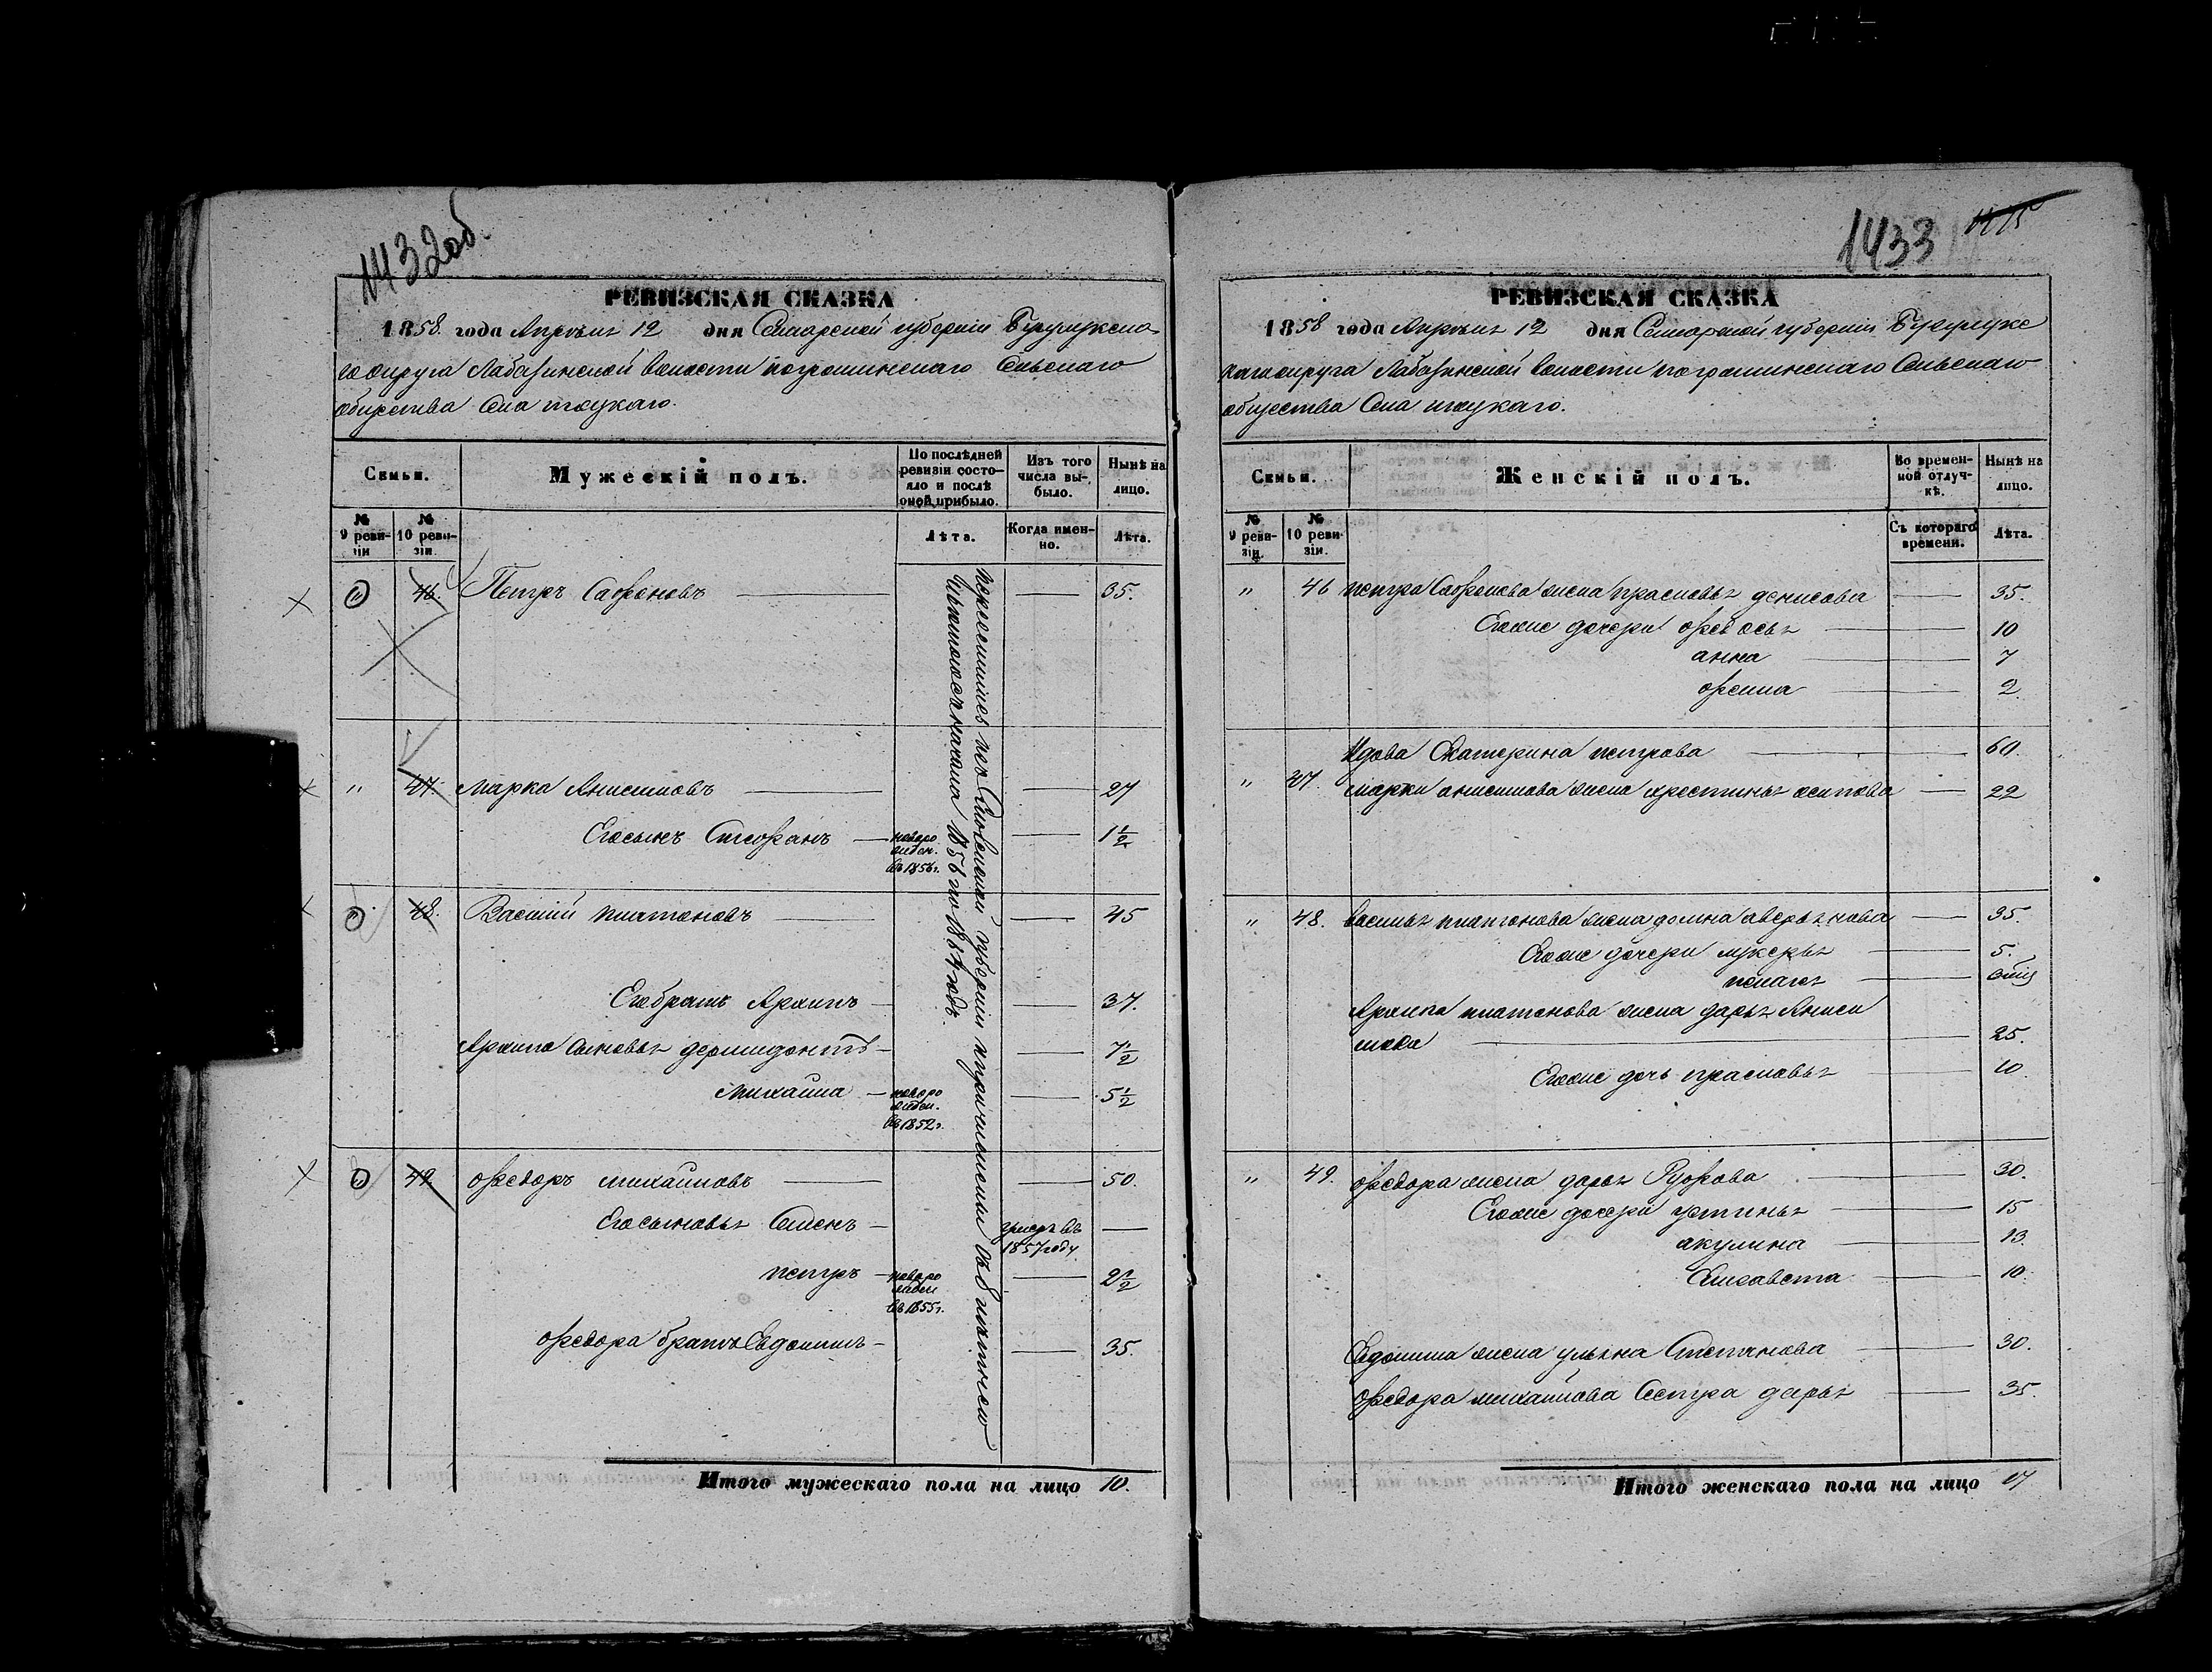 1432об.
РЕВИЗСКАЯ СКАЗКА
1858 года Апреля 12 дня Самарской губернии Бузулукска
го округа Лабазинской волости погроминскаго Сельскаго
общества Села тоцкаго.
Семьи.
Мужескій полъ.
По послѣдней ревизіи состояло и послѣ оной прибыло.
Изъ того числа выбыло.
Нынѣ на лицо.
№ 9 ревизіи
№ 10 ревизіи.
Лѣта.
Когда именно.
Лѣта.
" 46. Петръ Сафоновъ 35.
" 47. Марка Анисимовъ 27
Его сынъ Стефанъ новорожден. въ 1856 г. 1½
" 48. Василий платоновъ 45
Его братъ Архипъ 37.
Архипа сыновья дермидонтъ 7½
Михаила новорожден. въ 1852 г. 5½
" 49 Федоръ михайловъ 50.
Его сыновья Семенъ умеръ въ 1857 году
петръ новорожден въ 1855 г. 2½
Федора братъ Евдокимъ 35.
губернии и причислены въ
Итого мужескаго пола на лицо 10.
1433
1415
РЕВИЗСКАЯ СКАЗКА
1858 года Апреля 12 дня Самарской губернии Бузулукс
каго округа Лабазинской волости погроминскаго Сельскаго
общества Села тоцкаго.
Семьи.
Женскій полъ.
Во временной отлучкѣ.
Нынѣ на лицо.
№ 9 ревизіи.
№ 10 ревизіи.
Съ котораго времени.
Лѣта.
" 46 петра Сафонова жена прасковья денисова 35.
Его же дочери федосья 10
анна 7
фекла 2.
Вдова Екатерина петрова 60.
" 47. марки анисимова жена христинья осипова 22
" 48. василья платонова жена домна аверьянова 35.
Его же дочери лукерья 5.
пелагея
Архипа платонова жена дарья Аниси
мова 25.
Его же дочь прасковья 10
" 49. федора жена дарья 30.
Его же дочери устинья 15
акулина 13.
Елизавета 10.
Евдокима жена ульяна Степанова 30.
федора михайлова сестра дарья 35.
Итого женскаго пола на лицо 17